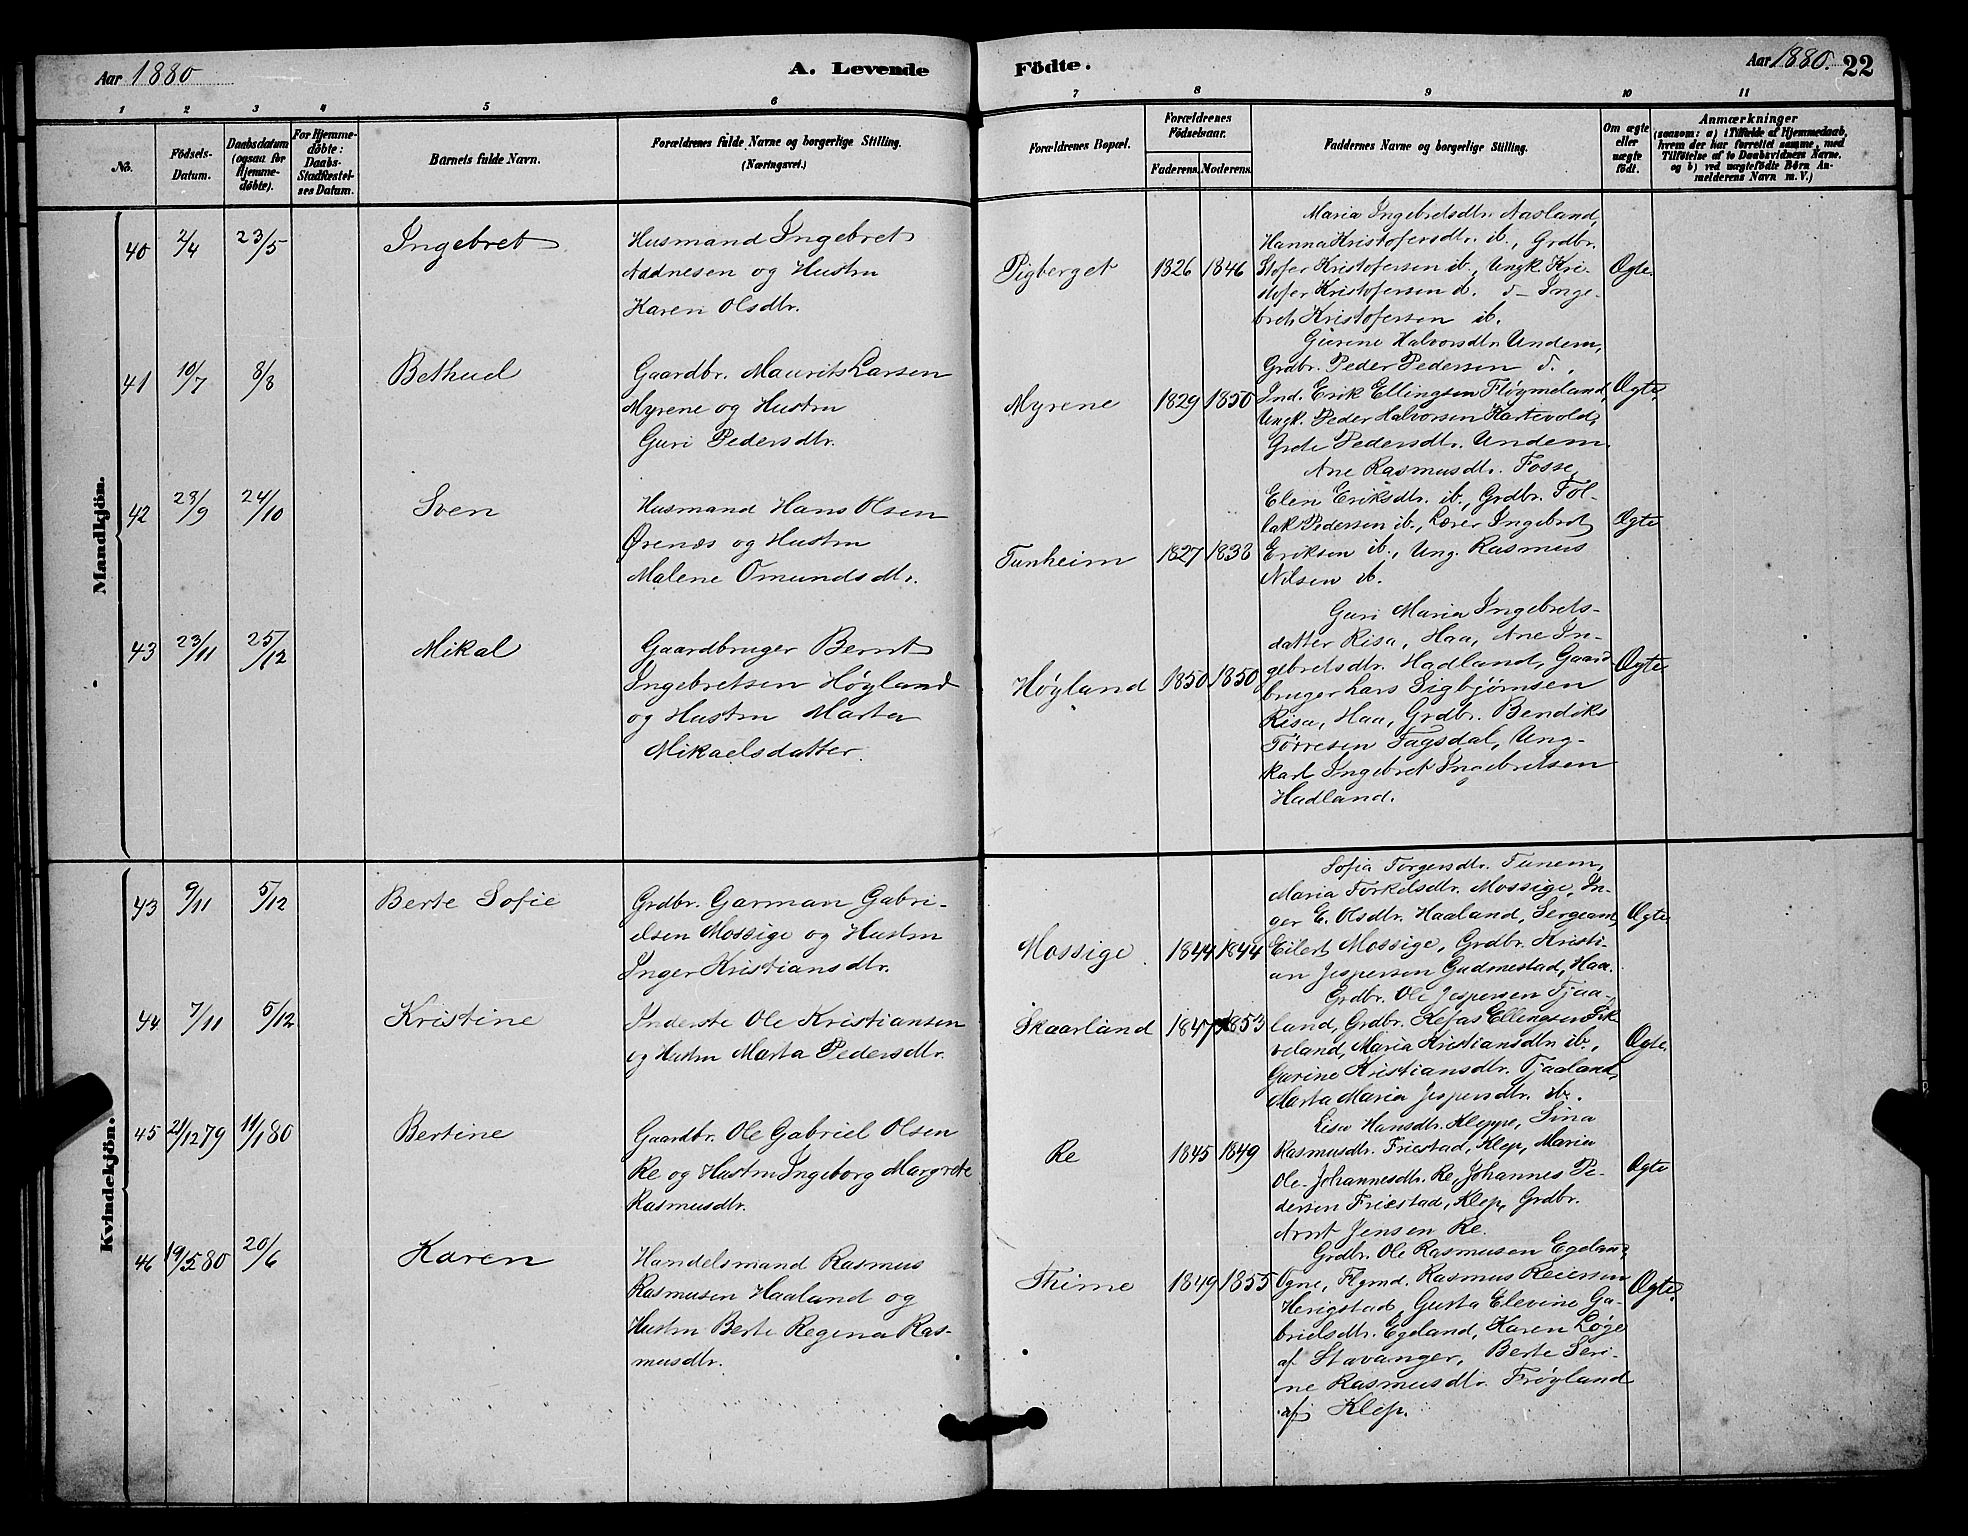 Aar 1880
A. Levende
Födte.
Aar 1880. 22
1 2 3 4 5 6 7 8 9 10 11
No.
Födsels-
Datum.
Daabsdatum
(ogsaa for
Hjemme-
döbte).
For Hjemme-
döbte:
Daabs-
Stadfæstel-
ses Datum.
Barnets fulde Navn.
Forældrenes fulde Navne og borgerlige Stilling.
(Næringsvei.)
Forældrenes Bopæl.
Forældrenes
Födselsaar.
Faderens. Moderens.
Faddernes Navne og borgerlige Stilling.
Om ægte
eller
uægte
födt.
Anmærkninger
(saasom: a) i Tilfælde af Hjemmedaab,
hvem der har forrettet samme, med
Tilföielse af to Daabsvidners Navne,
og b) ved uægtefödte Börn An-
melderens Navn m. V.)
Mandkjön.
40 2/4 23/5 Ingebret
Husmand Ingebret
Adnesen og Hustru
Karen Olsdtr.
Pigberget 1826 1846
Maria Ingebretsdtr. Aasland,
Hanna Kristofersdtr. ib., Grdbr.
Stofer Kristofersen ib., Ungk. Kri-
stofer Kristofersen ib. d- Inge-
bret Kristofersen ib.
Ægte.
41 10/7 8/8 Bethuel
Gaardbr. Maurits Larsen
Myrene og Hustru
Guri Pedersdtr.
Myrene 1829 1850
Gurine Halvorsdtr. Undem,
Grdbr. Peder Pedersen d.,
Ind. Erik Ellingsen Fløymeland,
Ungk. Peder Halvorsen Kartevold,
Grete Pedersdtr. Undem.
Ægte.
42 23/9 24/10 Sven
Husmand Hans Olsen
Ørenæs og Hustru
Malene Omundsdtr.
Tunheim 1827 1838
Ane Rasmusdtr. Fosse,
Elen Eriksdtr. ib., Grdbr. Tol-
lak Pedersen ib., Lærer Ingebret
Eriksen ib., Ung. Rasmus
Nilsen ib.
Ægte
43 23/11 25/12 Mikal
Gaardbruger Bernt
Ingebretsen Høyland
og Hustru Marta
Mikaelsdatter.
Høyland 1850 1850
Guri Maria Ingebrets-
datter Risa, Haa, Ane In-
gebretsdtr. Hadland, Gaard-
bruger Lars Sigbjørnsen
Risa, Haa, Grdbr. Bendiks
Tørresen Fagsdal, Ung-
karl Ingebret Ingebretsen
Hadland.
Ægte
Kvindekjön.
43 9/11 5/12 Berte Sofie
Grdbr. Garman Gabri-
elsen Mossige og Hustru
Inger Kristiansdtr.
Mossige 1844 1844
Sofia Torgersdtr. Tunem,
Maria Torkelsdtr. Mossige, In-
ger E. Olsdtr. Haaland, Sergeant
Eilert Mossige, Grdbr. Kristi-
an Jespersen Gudmestad, Haa.
Ægte
44 7/11 5/12 Kristine
Inderste Ole Kristiansen
og Hustru Marta Pedersdtr.
Skaarland 1847 1853
Grdbr. Ole Jespersen Tjaa-
land, Grdbr. Kefas Ellingsen
veland, Maria Kristiansdtr. ib.,
Gurine Kristiansdtr. Tjaaland,
Marta Maria Jespersdtr. ib.
Ægte.
45 21/12 79 11/1 80 Bertine
Gaardbr. Ole Gabriel Olsen
Re og Hustru Ingeborg Margrete
Rasmusdtr.
Re 1845 1849
Lisa Hansdtr. Kleppe, Sina
Rasmusdtr. Friestad, Klep, Maria
Ole-Johannesdtr. Re, Johannes Pe-
dersen Friestad, Klep, Grdbr.
Arnt Jensen Re.
Ægte
46 19/5 80 20/6 Karen
Handelsmand Rasmus
Rasmusen Haaland og
Hustru Berte Regina Ras-
musdtr.
Thime 1849 1855
Grdbr. Ole Rasmusen Egeland,
Ogne, Flgmd. Rasmus Reiersen
Herigstad, Gusta Elevine Ga-
brielsdtr. Egeland, Karen Løge
af Stavanger, Berte Seri-
ne Rasmusdtr. Frøyland
af Klep.
Ægte.